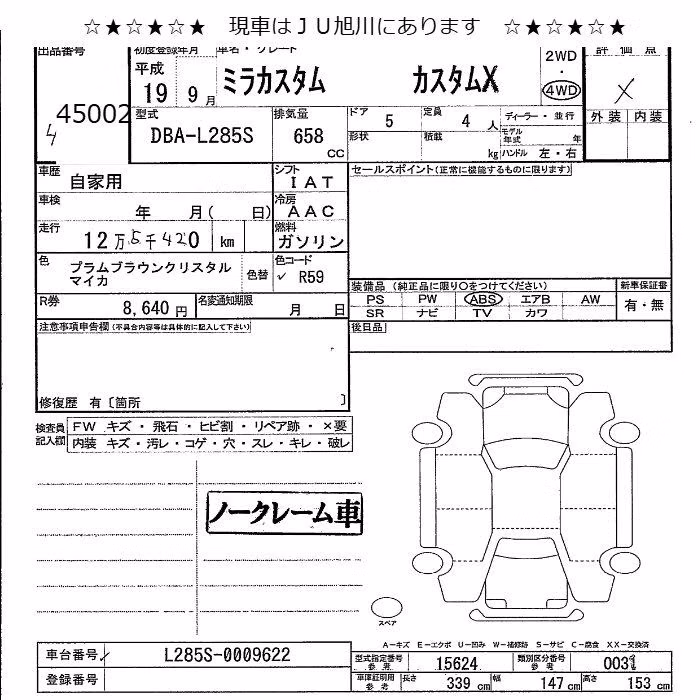 ☆★☆★☆★ 現車はＪＵ旭川にあります ☆★☆★☆★
出品番号 初度登録年月 車名・グレード 評価点
平成 19 9 月 ミラカスタム カスタムX 2WD ・ 4WD X
45002
4
型式 DBA-L285S 排気量 658 CC
ドア 5 定員 4 人 ディーラー・並行
形状 積載 kg モデル年式 年
ハンドル 左・右
外装 内装
車歴 自家用 シフト IAT
車検 年 月( 日) 冷房 AAC
走行 12万5千420 km 燃料 ガソリン
色 プラムブラウンクリスタル
マイカ 色替 色コード R59
R券 8,640 円 名変通知期限 月 日
セールスポイント(正常に機能するものに限ります)
装備品 (純正品に限り○をつけてください) 新車保証書
PS PW ABS エアB AW 有・無
SR ナビ TV カワ
後日品
注意事項申告欄(不具合内容等は具体的に記入して下さい)
修復歴 有〔箇所 〕
検査員記入欄 FW キズ・飛石・ヒビ割・リペア跡・×要
内装 キズ・汚レ・コゲ・穴・スレ・キレ・破レ
ノークレーム車
スペア
A－キズ E－エクボ U－凹み W－補修跡 S－サビ C－腐食 XX－交換済
車台番号 L285S-0009622
登録番号
型式指定番号 参考 15624 類別区分番号 参考
車庫証明用 参考 長さ 339 cm 幅 147 cm 高さ 153 cm